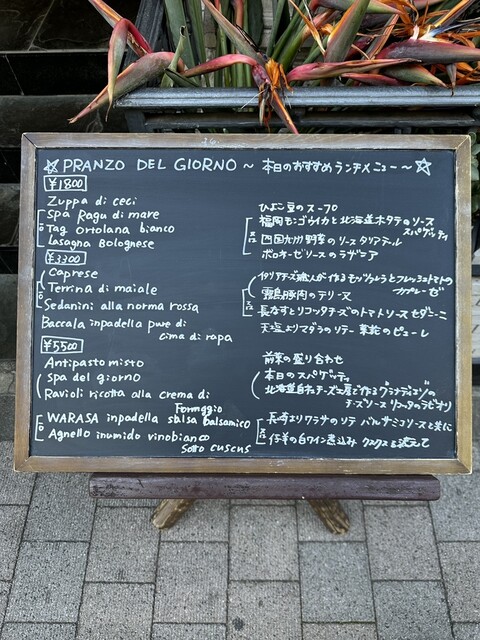 ☆PRANZO DEL GIORNO ～ 本日のおすすめランチメニュー～☆
¥1800
Zuppa di ceci
Spa Ragu di mare
Tag Ortolana bianco
Lasagna Bolognese
¥3300
Caprese
Terrina di maiale
Sedanini alla norma rossa
Baccala inpadella pure di
cima di rapa
¥5500
Antipasto misto
Spa del giorno
Ravioli ricotta alla crema di
Formggio
WARASA inpadella salsa balsamico
Agnello inumido vinobianco
Sotto cuscus
ひよこ豆のスープ
福岡モンゴウイカと北海道ホタテのソース
スパゲッティ
四国九州野菜のソース タリアテッレ
ボロネーゼソースのラザニア
イタリアチーズ職人が作るモッツァレラとフレッシュトマトの
カプレーゼ
霧島豚肉のテリーヌ
長なすとリコッタチーズのトマトソース セダニーニ
マダラのソテー 菜花のピューレ
前菜の盛り合わせ
本日のスパゲッティ
北海道白糠チーズ工房で作る
チーズソース リコッタのラビオリ
長崎よりワラサのソテ バルサミコソースと共に
仔羊の白ワイン煮込み クスクスを添えて